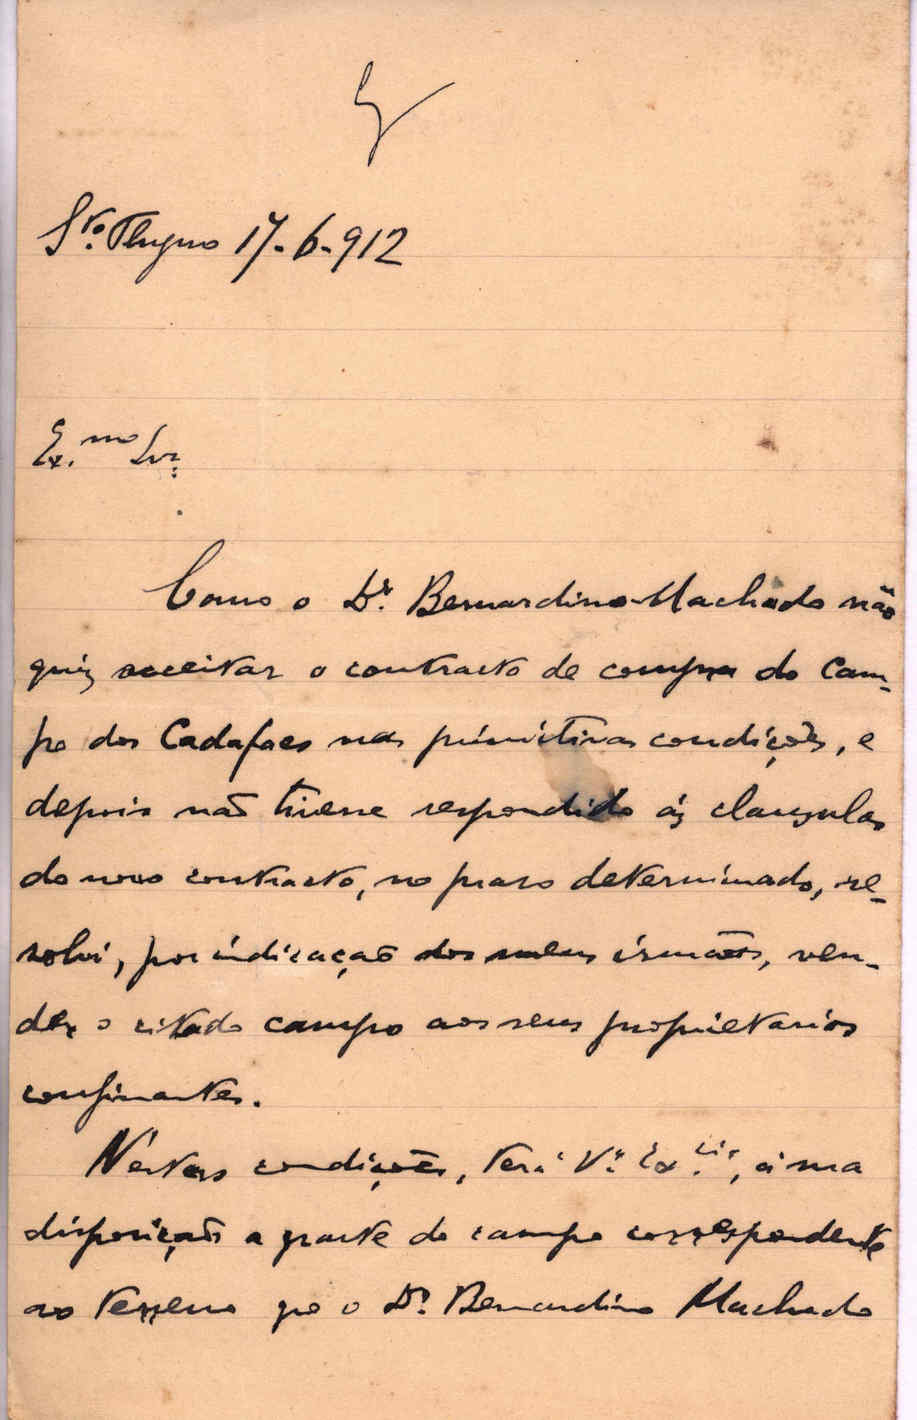 Sto. Thyrso 17-6-912
Ex.mo Snr.
Como o Dr. Bernardino Machado não
quiz acceitar o contracto de compra do Cam-
po dos Cadafaes nas primitivas condições, e
depois não tivesse respondido ás clausulas
do novo contracto, no praso determinado, re-
solvi, por indicação dos meus irmãos, ven-
der o citado campo aos seus proprietarios
confinantes.
Néstas condições, terá V.ª Ex.cia, á sua
disposição a parte do campo correspondente
ao terreno que o Dr. Bernardino Machado